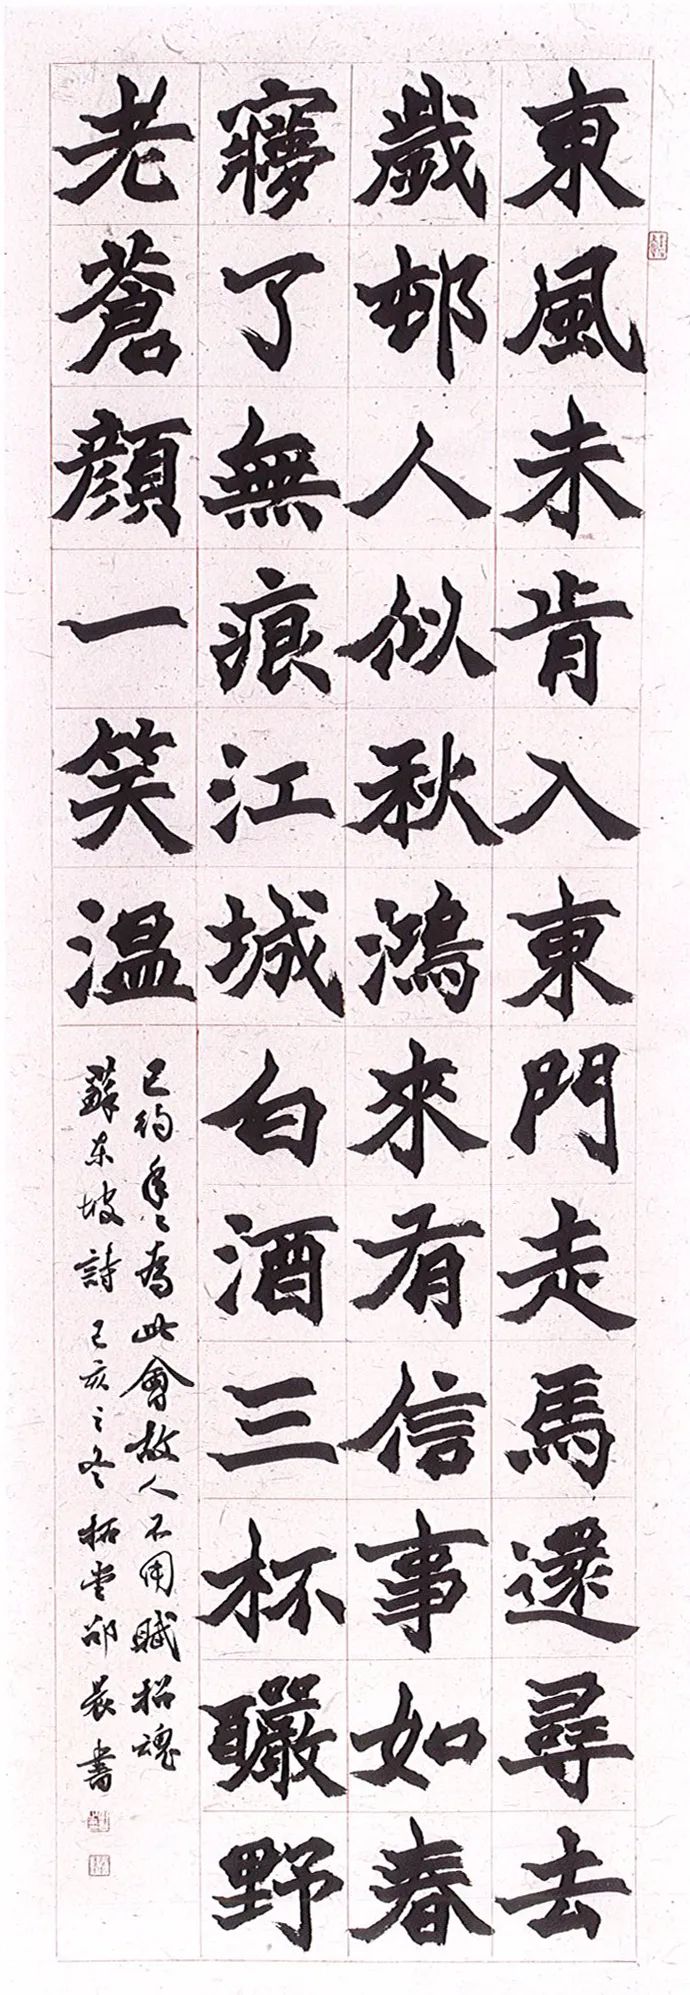 東風未肯入東門走馬還尋去
歲邨人似秋鴻來有信事如春
寱了無痕江城白酒三杯釅野
老蒼顏一笑溫
已約年〻為此會故人不用賦招魂
蘇東坡詩己亥之冬拓堂邵晨書